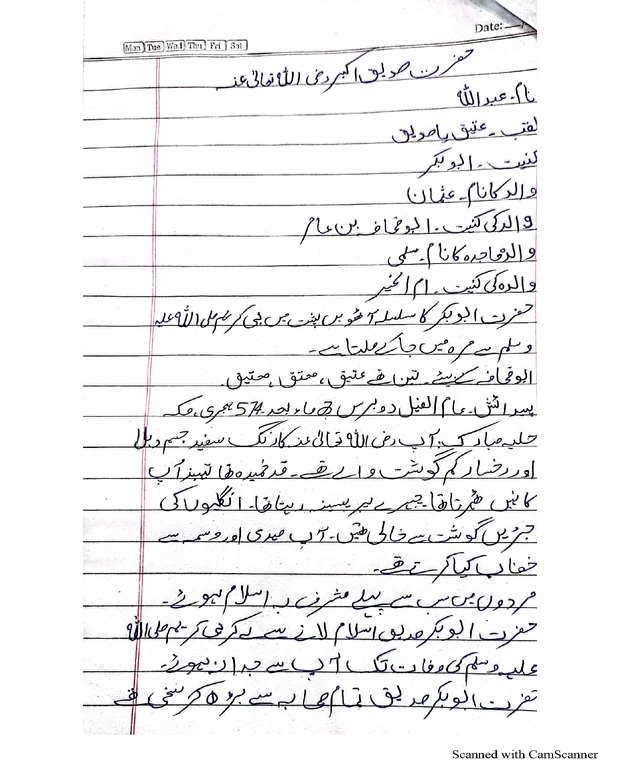 Date:
Mon Tue Wed Thu Fri Sat
حضرت صدیق اکبر رضی اللہ تعالیٰ عنہ
نام۔ عبداللہ
لقب۔ عتیق یا صدیق
کنیت۔ ابوبکر
والد کا نام۔ عثمان
والد کی کنیت۔ ابو قحافہ بن عامر
والدہ ماجدہ کا نام۔ سلمی
والدہ کی کنیت۔ ام الخیر
حضرت ابوبکر کا سلسلہ آٹھویں پشت میں نبی کریم صلی اللہ علیہ
وسلم سے مرہ میں جا کے ملتا ہے۔
ابو قحافہ کے بیٹے۔ تین تھے عتیق، معتق، معتیق۔
پیدائش۔ عام الفیل دو برس ماہ بعد 574 ہجری، مکہ
حلیہ مبارک: آپ رضی اللہ تعالیٰ عنہ کا رنگ سفید جسم دبلا
اور رخسار کم گوشت والے تھے۔ قد خمیدہ تھا تہبند آپ
کا نہیں ٹھہرتا تھا۔ چہرے پر پسینہ رہتا تھا۔ انگلیوں کی
جڑیں گوشت سے خالی تھیں۔ آپ مہدی اور وسمہ سے
خضاب کیا کرتے تھے۔
مردوں میں سب سے پہلے مشرف بہ اسلام ہوئے۔
حضرت ابوبکر صدیق اسلام لانے سے لے کر نبی کریم صلی اللہ
علیہ وسلم کی وفات تک آپ سے جدا نہ ہوئے۔
حضرت ابوبکر صدیق تمام صحابہ سے بڑھ کر سخی تھے
Scanned with CamScanner